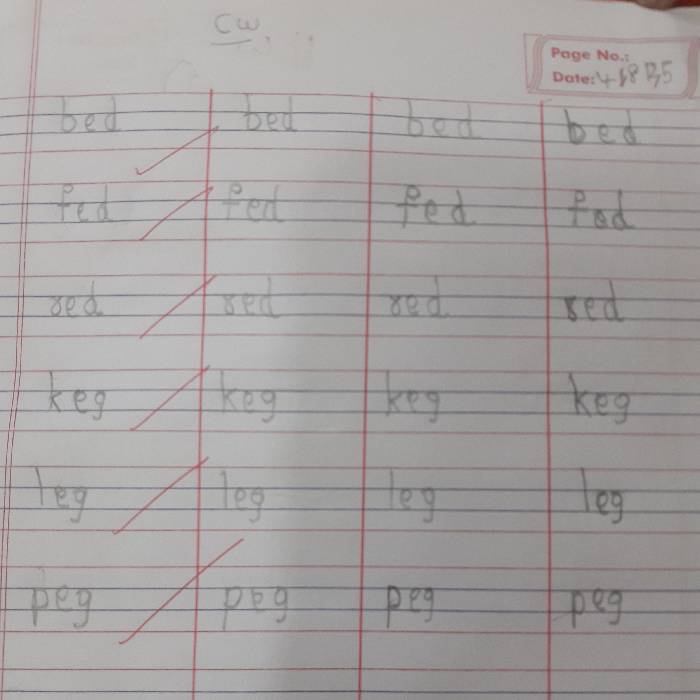 CW
Page No.:
Date:
bed bed bed bed
fed fed fed fed
red red red red
keg keg keg keg
leg leg leg leg
peg peg peg peg